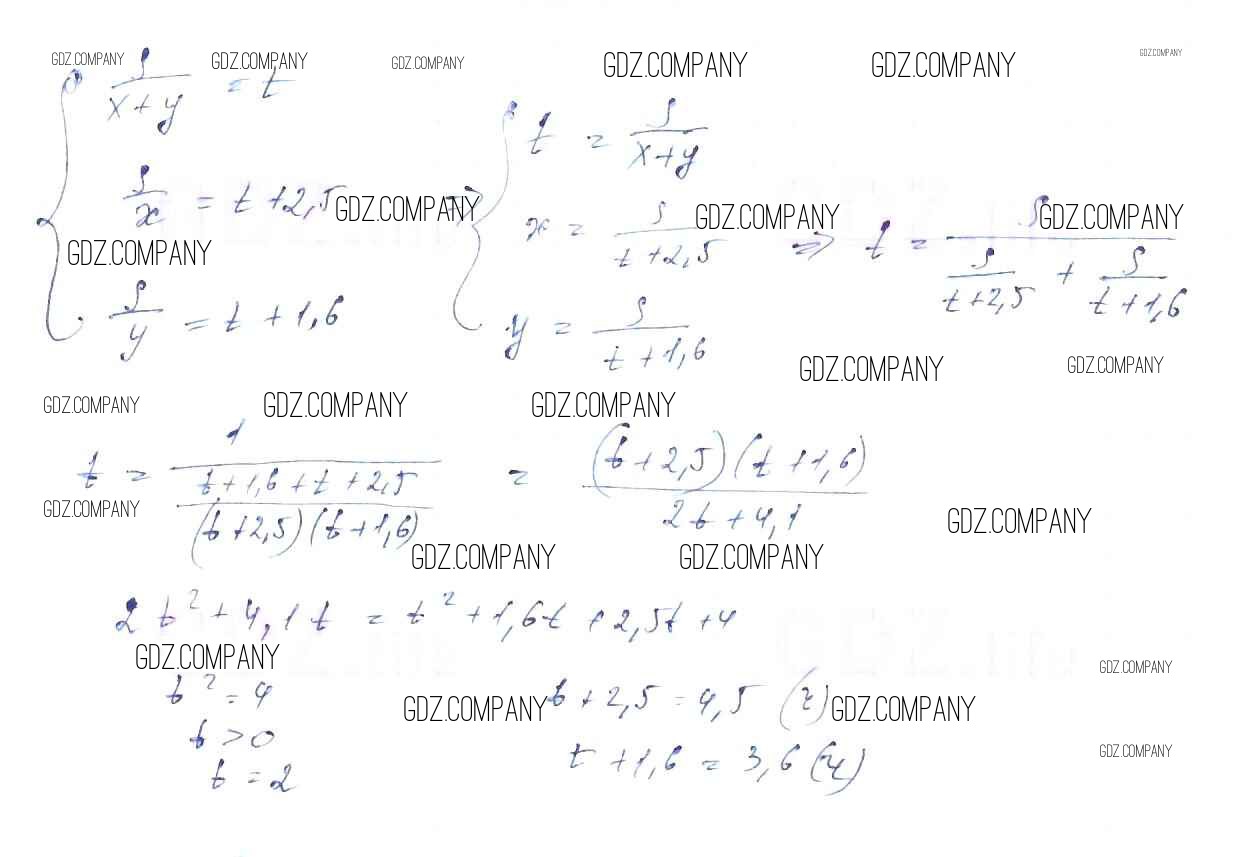 GDZ.COMPANY GDZ.COMPANY GDZ.COMPANY GDZ.COMPANY GDZ.COMPANY GDZ.COMPANY
S/(x+y) = t
S/x = t+2,5
S/y = t+1,6
GDZ.COMPANY
GDZ.COMPANY
⇒
t = S/(x+y)
x = S/(t+2,5)
y = S/(t+1,6)
GDZ.COMPANY GDZ.COMPANY
⇒ t = S/(S/(t+2,5) + S/(t+1,6))
GDZ.COMPANY GDZ.COMPANY
GDZ.COMPANY GDZ.COMPANY GDZ.COMPANY
t = 1/((t+1,6+t+2,5)/((t+2,5)(t+1,6))) = (t+2,5)(t+1,6)/(2t+4,1)
GDZ.COMPANY GDZ.COMPANY
GDZ.COMPANY GDZ.COMPANY
2t²+4,1t = t²+1,6t+2,5t+4
GDZ.COMPANY GDZ.COMPANY
t² = 4
GDZ.COMPANY t+2,5 = 4,5 (ч) GDZ.COMPANY
t > 0
t+1,6 = 3,6 (ч) GDZ.COMPANY
t = 2